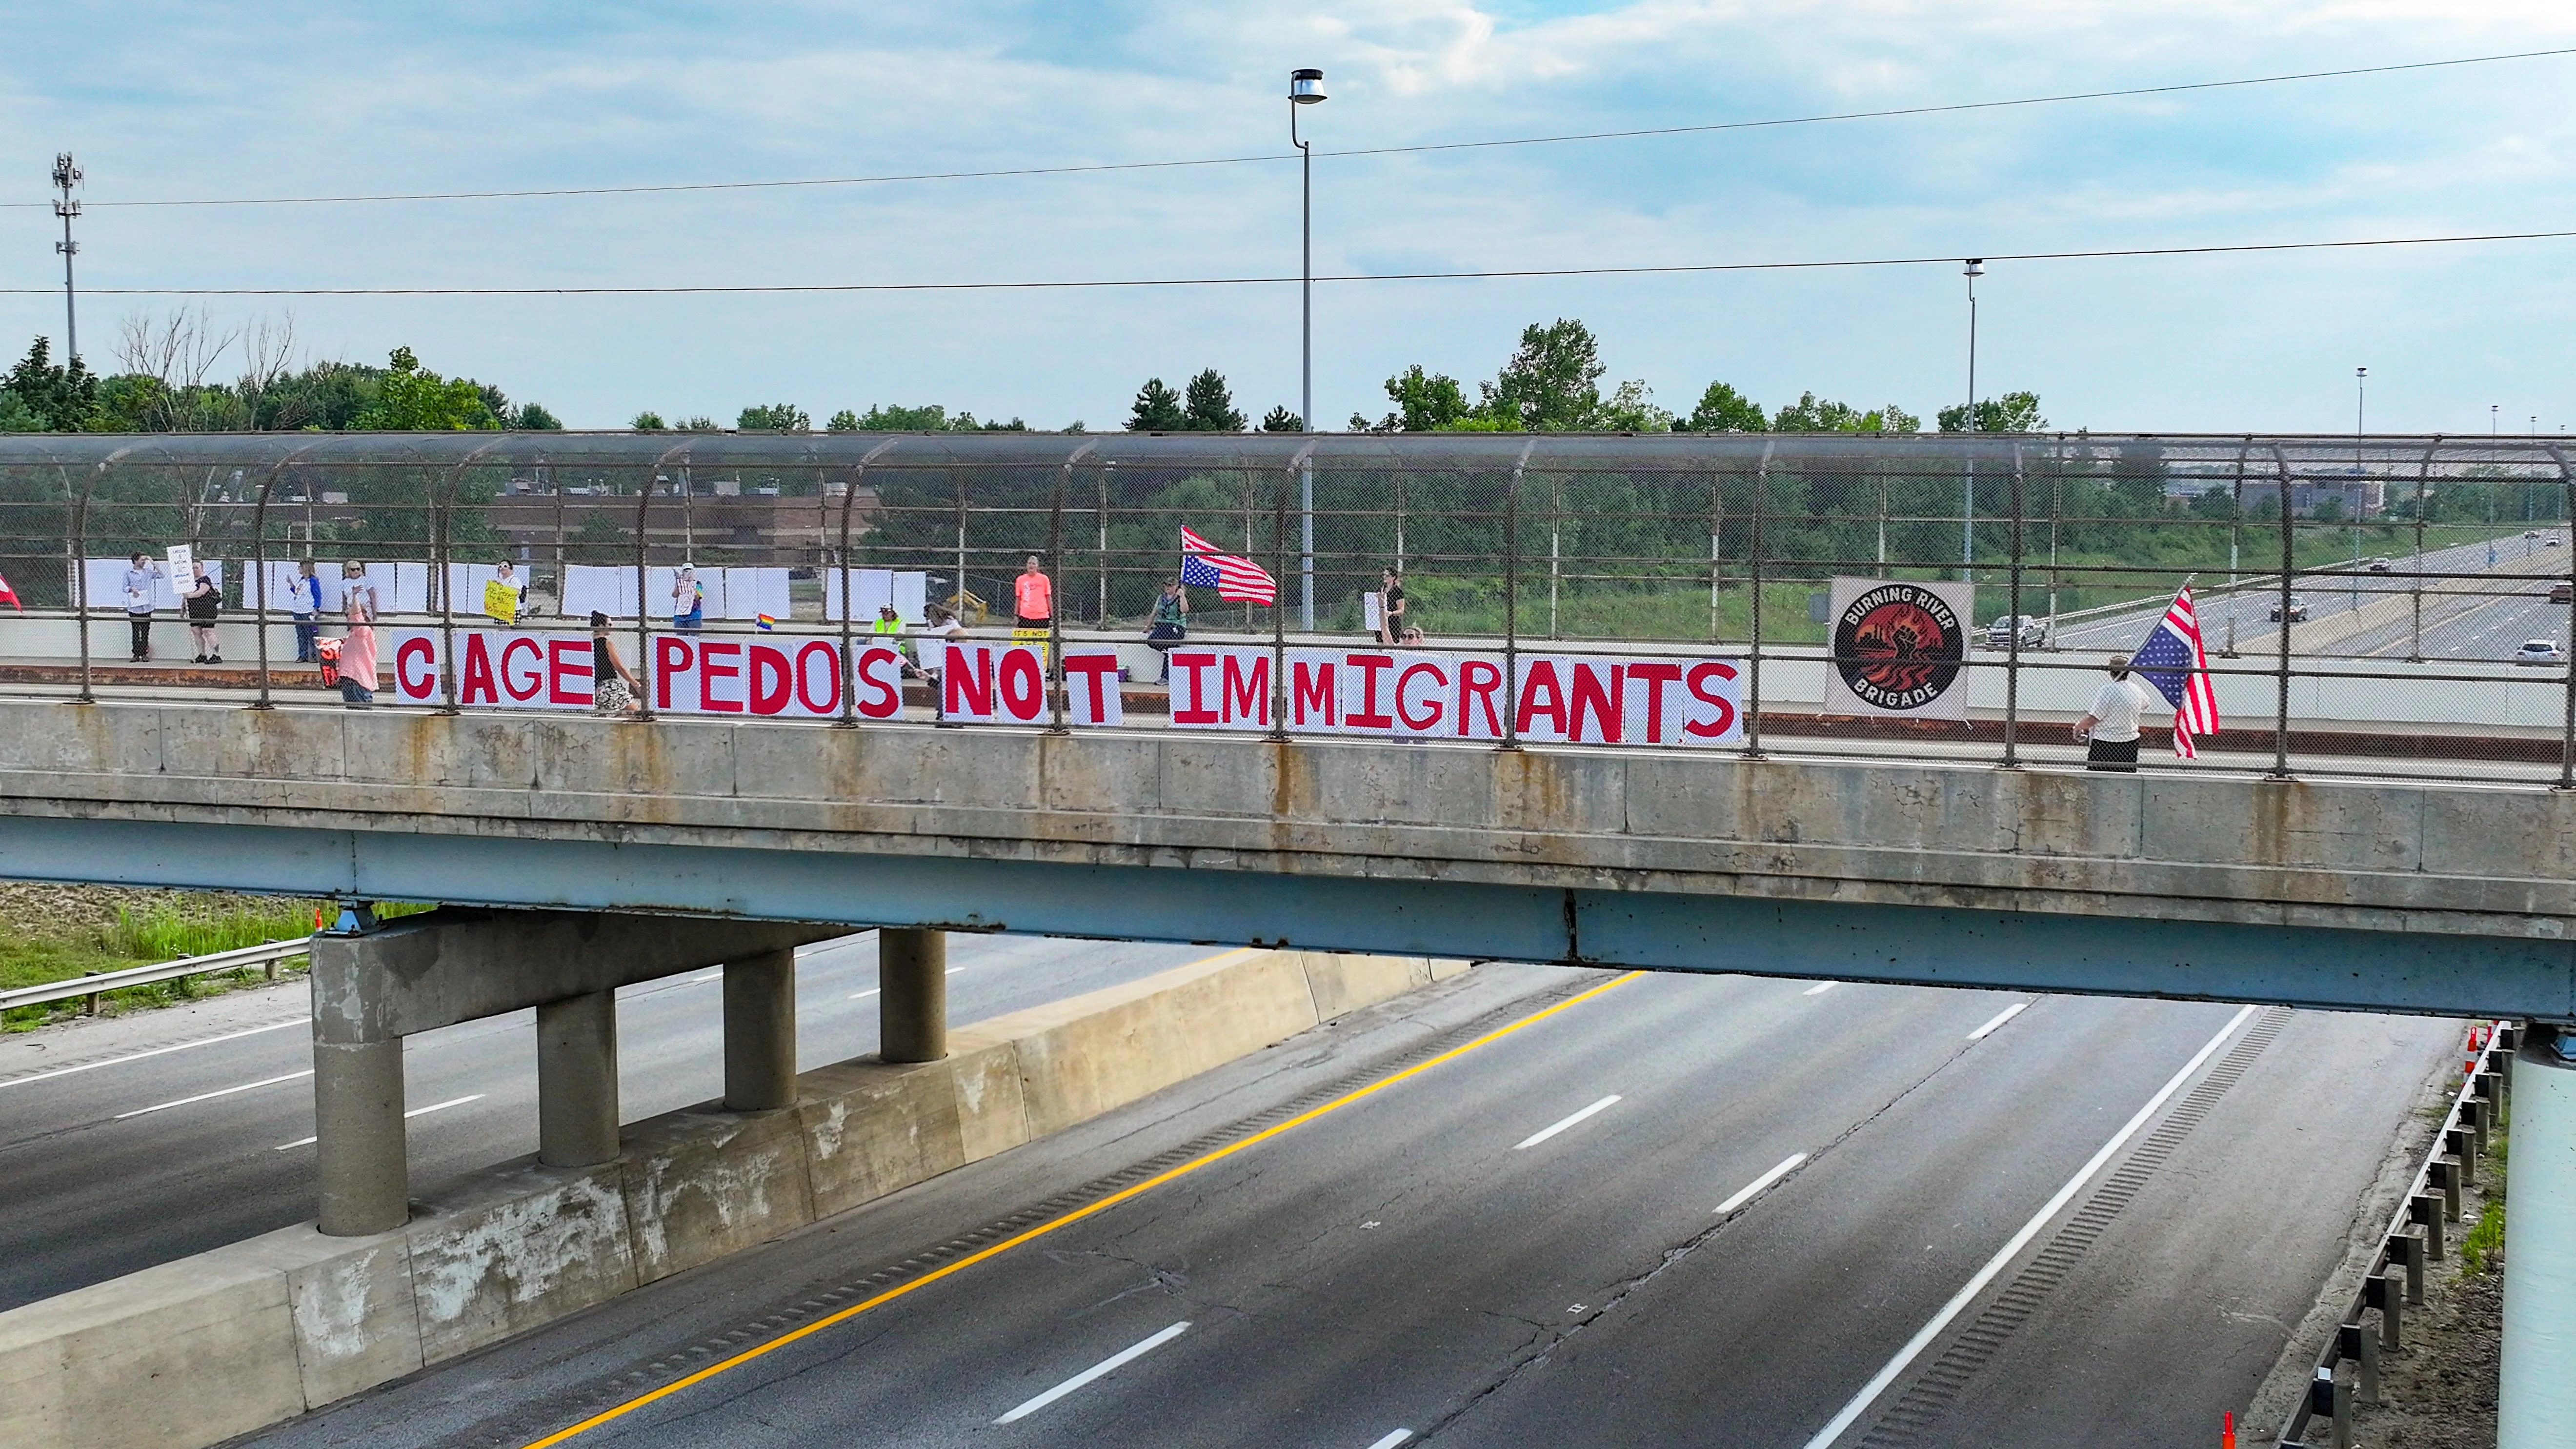 CAGE PEDOS NOT IMMIGRANTS
BURNING RIVER
BRIGADE
IT'S NOT